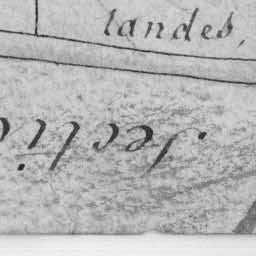 landes,
Sectio